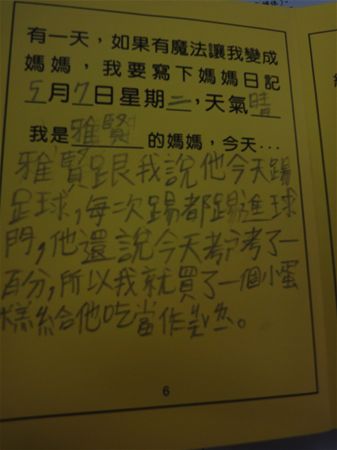 有一天，如果有魔法讓我變成
媽媽，我要寫下媽媽日記
5月7日星期二，天氣晴
我是雅賢的媽媽，今天…
雅賢跟我說他今天踢
足球，每次踢都踢進球
門，他還說今天考試考了一
百分，所以我就買了一個小蛋
糕給他吃當作獎
6